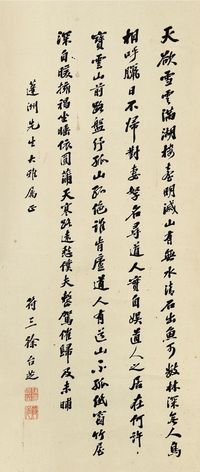 天欲雪雲滿湖樓臺明滅山有無水清石出魚可數林深無人鳥
相呼臘日不歸對妻孥名尋道人實自娛道人之居在何許
寶雲山前路盤紆孤山孤絕誰肯廬道人有道山不孤紙窗竹屋
深自暖擁褐坐睡依團蒲天寒路遠愁僕夫整駕催歸及未晡
蓮洲先生大雅屬正
符三徐台